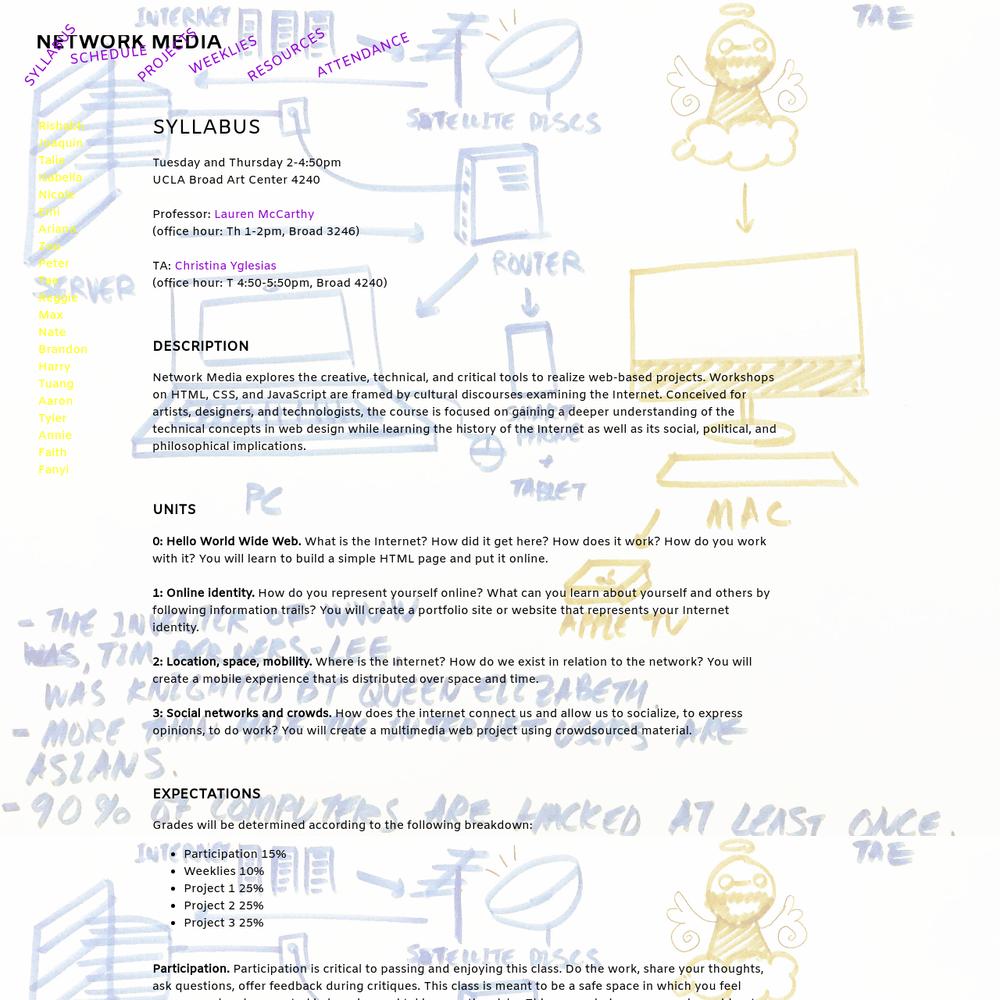 NETWORK MEDIA
SYLLABUS
SCHEDULE
PROJECTS
WEEKLIES
RESOURCES
ATTENDANCE
INTERNET
TAE
SATELLITE DISCS
ROUTER
SERVER
PC
SMART
PHONE
+
TABLET
MAC
APPLE TV
- THE INVENTER OF WWW
WAS, TIM BERNERS-LEE
WAS KNIGHTED BY QUEEN ELIZABETH
- MORE THAN HALF THE INTERNET USERS ARE
ASIANS.
- 90% OF COMPUTERS ARE HACKED AT LEAST ONCE.
Joaquin
Talia
Isabella
Nicole
Ariana
Zoe
Peter
Reggie
Max
Nate
Brandon
Harry
Tuang
Aaron
Tyler
Annie
Faith
Fanyi
SYLLABUS
Tuesday and Thursday 2-4:50pm
UCLA Broad Art Center 4240
Professor: Lauren McCarthy
(office hour: Th 1-2pm, Broad 3246)
TA: Christina Yglesias
(office hour: T 4:50-5:50pm, Broad 4240)
DESCRIPTION
Network Media explores the creative, technical, and critical tools to realize web-based projects. Workshops
on HTML, CSS, and JavaScript are framed by cultural discourses examining the Internet. Conceived for
artists, designers, and technologists, the course is focused on gaining a deeper understanding of the
technical concepts in web design while learning the history of the Internet as well as its social, political, and
philosophical implications.
UNITS
0: Hello World Wide Web. What is the Internet? How did it get here? How does it work? How do you work
with it? You will learn to build a simple HTML page and put it online.
1: Online identity. How do you represent yourself online? What can you learn about yourself and others by
following information trails? You will create a portfolio site or website that represents your Internet
identity.
2: Location, space, mobility. Where is the Internet? How do we exist in relation to the network? You will
create a mobile experience that is distributed over space and time.
3: Social networks and crowds. How does the internet connect us and allow us to socialize, to express
opinions, to do work? You will create a multimedia web project using crowdsourced material.
EXPECTATIONS
Grades will be determined according to the following breakdown:
• Participation 15%
• Weeklies 10%
• Project 1 25%
• Project 2 25%
• Project 3 25%
INTERNET
TAE
SATELLITE DISCS
Participation. Participation is critical to passing and enjoying this class. Do the work, share your thoughts,
ask questions, offer feedback during critiques. This class is meant to be a safe space in which you feel